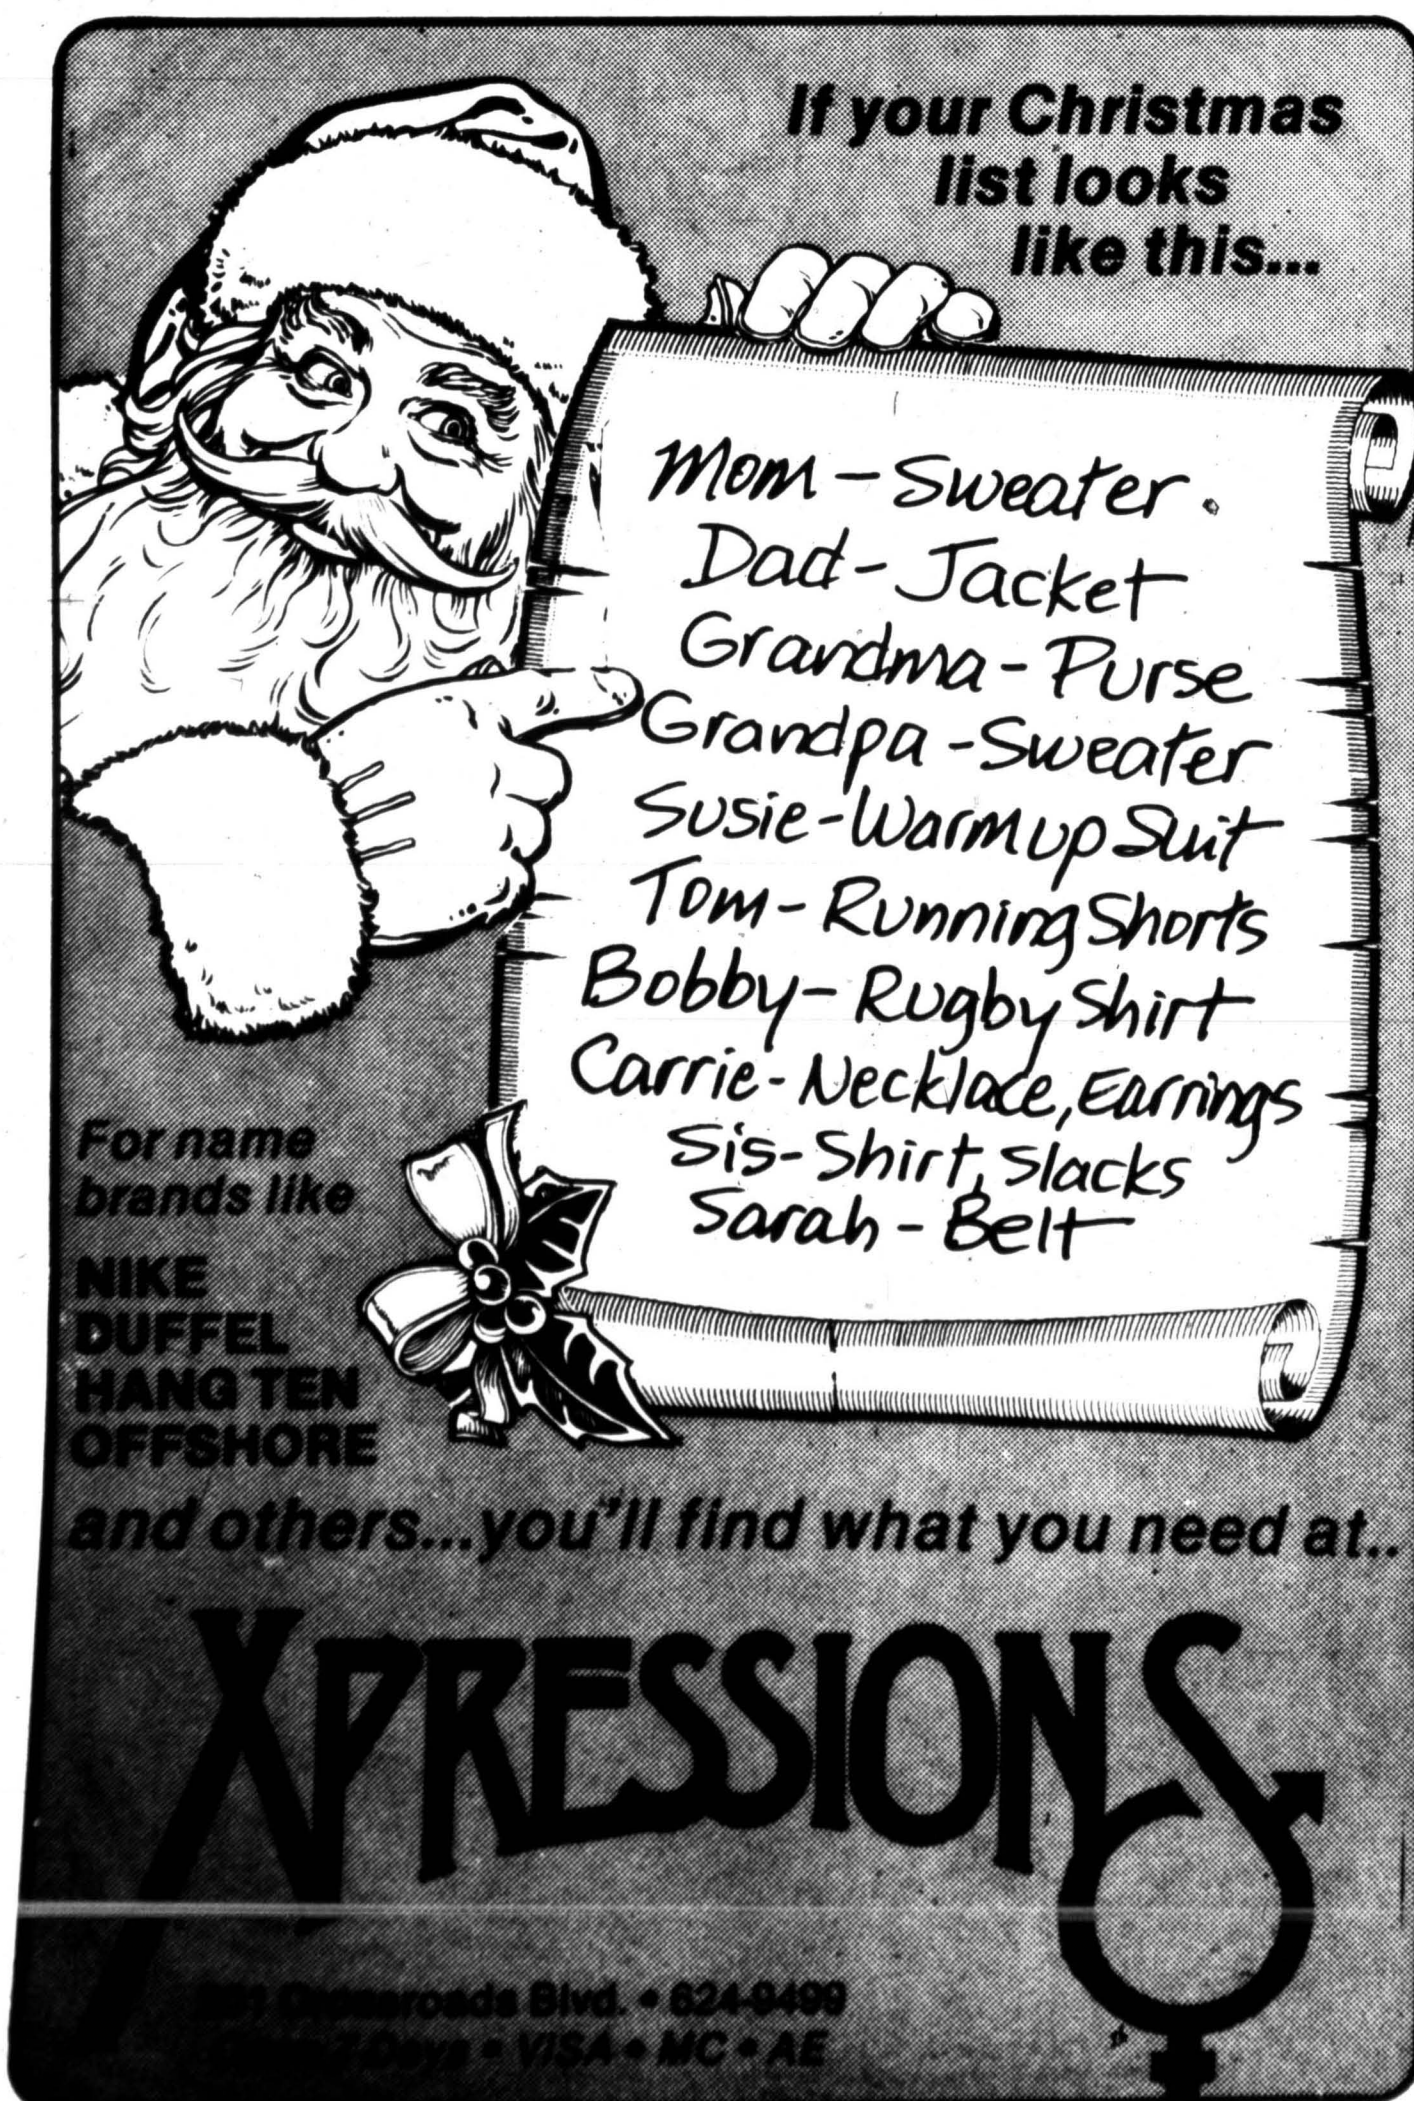 If your Christmas
list looks
like this...
Mom - Sweater.
Dad - Jacket
Grandma - Purse
Grandpa - Sweater
Susie - Warm up Suit
Tom - Running Shorts
Bobby - Rugby Shirt
Carrie - Necklace, Earrings
Sis - Shirt, Slacks
Sarah - Belt
For name
brands like
NIKE
DUFFEL
HANG TEN
OFFSHORE
and others...you'll find what you need at..
XPRESSIONS
Crossroads Blvd. • 624-9499
7 Days • VISA • MC • AE